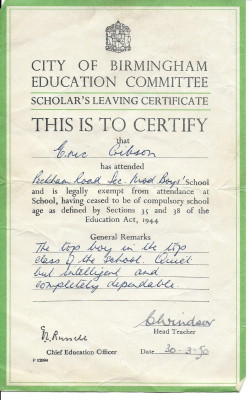 CITY OF BIRMINGHAM
EDUCATION COMMITTEE
SCHOLAR'S LEAVING CERTIFICATE
THIS IS TO CERTIFY
that
Eric Gibson
has attended
Road Sec. Mod Boys' School
and is legally exempt from attendance at
School, having ceased to be of compulsory school
age as defined by Sections 35 and 38 of the
Education Act, 1944
General Remarks
The top boy in the top
class of the school. Quiet
but intelligent and
completely dependable.
Russell
Chief Education Officer
Head Teacher
Date 30-3-50